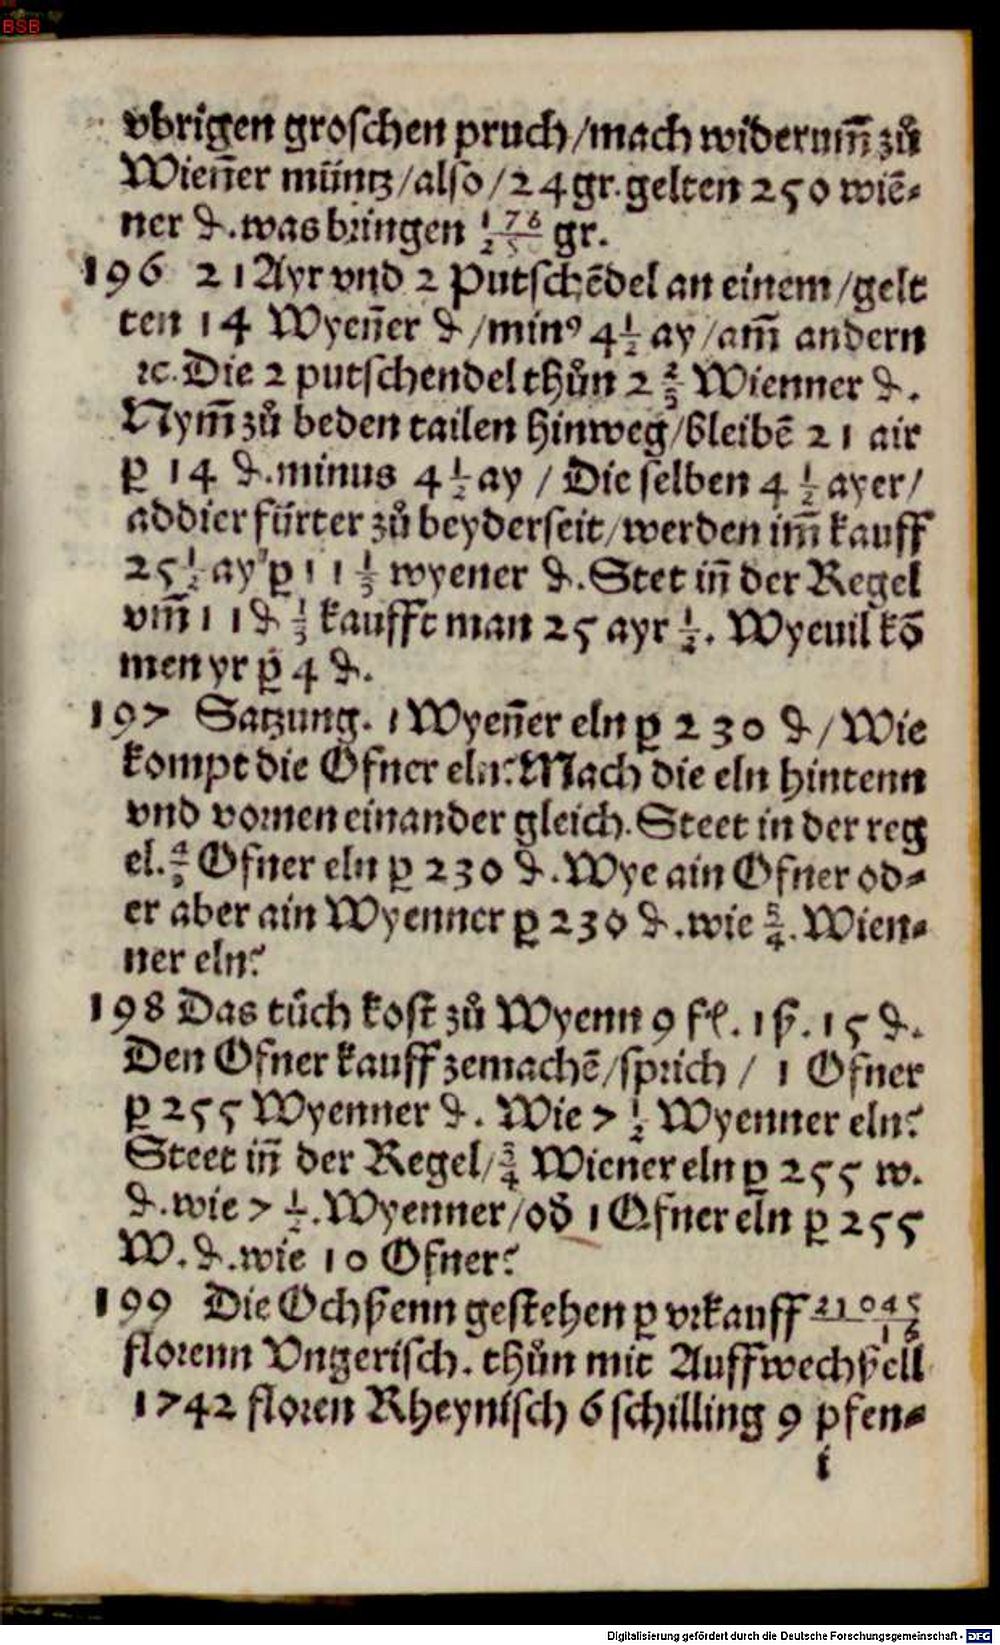 BSB
vbrigen groschen pruch/mach widerum̄ zů
Wien̄er müntz/also/24 gr. gelten 250 wiē⸗
ner ₰. was bringen gr.
196 21 Ayr vnd 2 Putschēdel an einem/gelt
ten 14 Wyen̄er ₰/minꝰ 4½ ay/am̄ andern
ꝛc. Die 2 putschendel thůn 2⅔ Wienner ₰.
Nym̄ zů beden tailen hinweg/bleibē 21 air
ꝑ 14 ₰. minus 4½ ay / Die selben 4½ ayer/
addier fürter zů beyderseit/werden im̄ kauff
25½ ay ꝑ 11⅓ wyener ₰. Stet in̄ der Regel
vm̄ 11 ₰ ⅓ kaufft man 25 ayr ½. Wyeuil kō
men yr ꝑ 4 ₰.
197 Satzung. 1 Wyen̄er eln ꝑ 230 ₰/Wie
kompt die Ofner eln? Mach die eln hintenn
vnd vornen einander gleich. Steet in der reg
el. ⅘ Ofner eln ꝑ 230 ₰. Wye ain Ofner od⸗
er aber ain Wyenner ꝑ 230 ₰. wie . Wien⸗
ner eln?
198 Das tůch kost zů Wyenn 9 fl. 1 ß. 15 ₰.
Den Ofner kauff zemachē/sprich / 1 Ofner
ꝑ 255 Wyenner ₰. Wie 7½ Wyenner eln?
Steet in̄ der Regel/¾ Wiener eln ꝑ 255 w.
₰. wie 7½. Wyenner/od̄ 1 Ofner eln ꝑ 255
W. ₰. wie 10 Ofner?
199 Die Ochßenn gestehen ꝑ vrkauff 21045/16
florenn Vngerisch. thůn mit Auffwechßell
1742 floren Rheynisch 6 schilling 9 pfen⸗
i
Digitalisierung gefördert durch die Deutsche Forschungsgemeinschaft - DFG